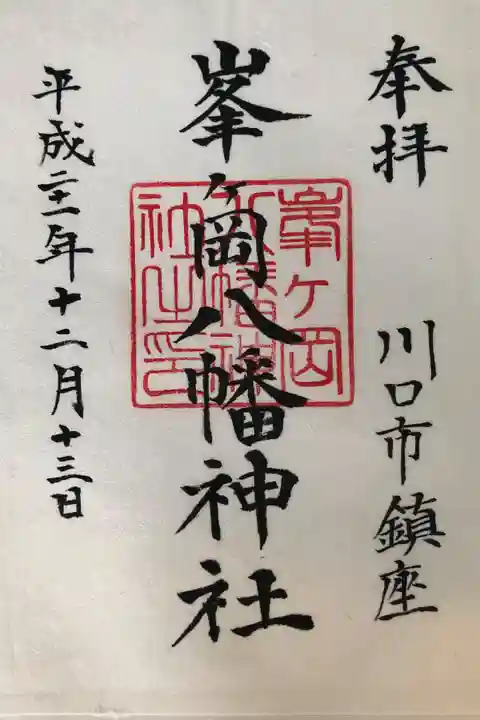 奉拝
川口市鎮座
峯ヶ岡八幡神社
峯ヶ岡
八幡神
社之印
平成二十一年十二月十三日